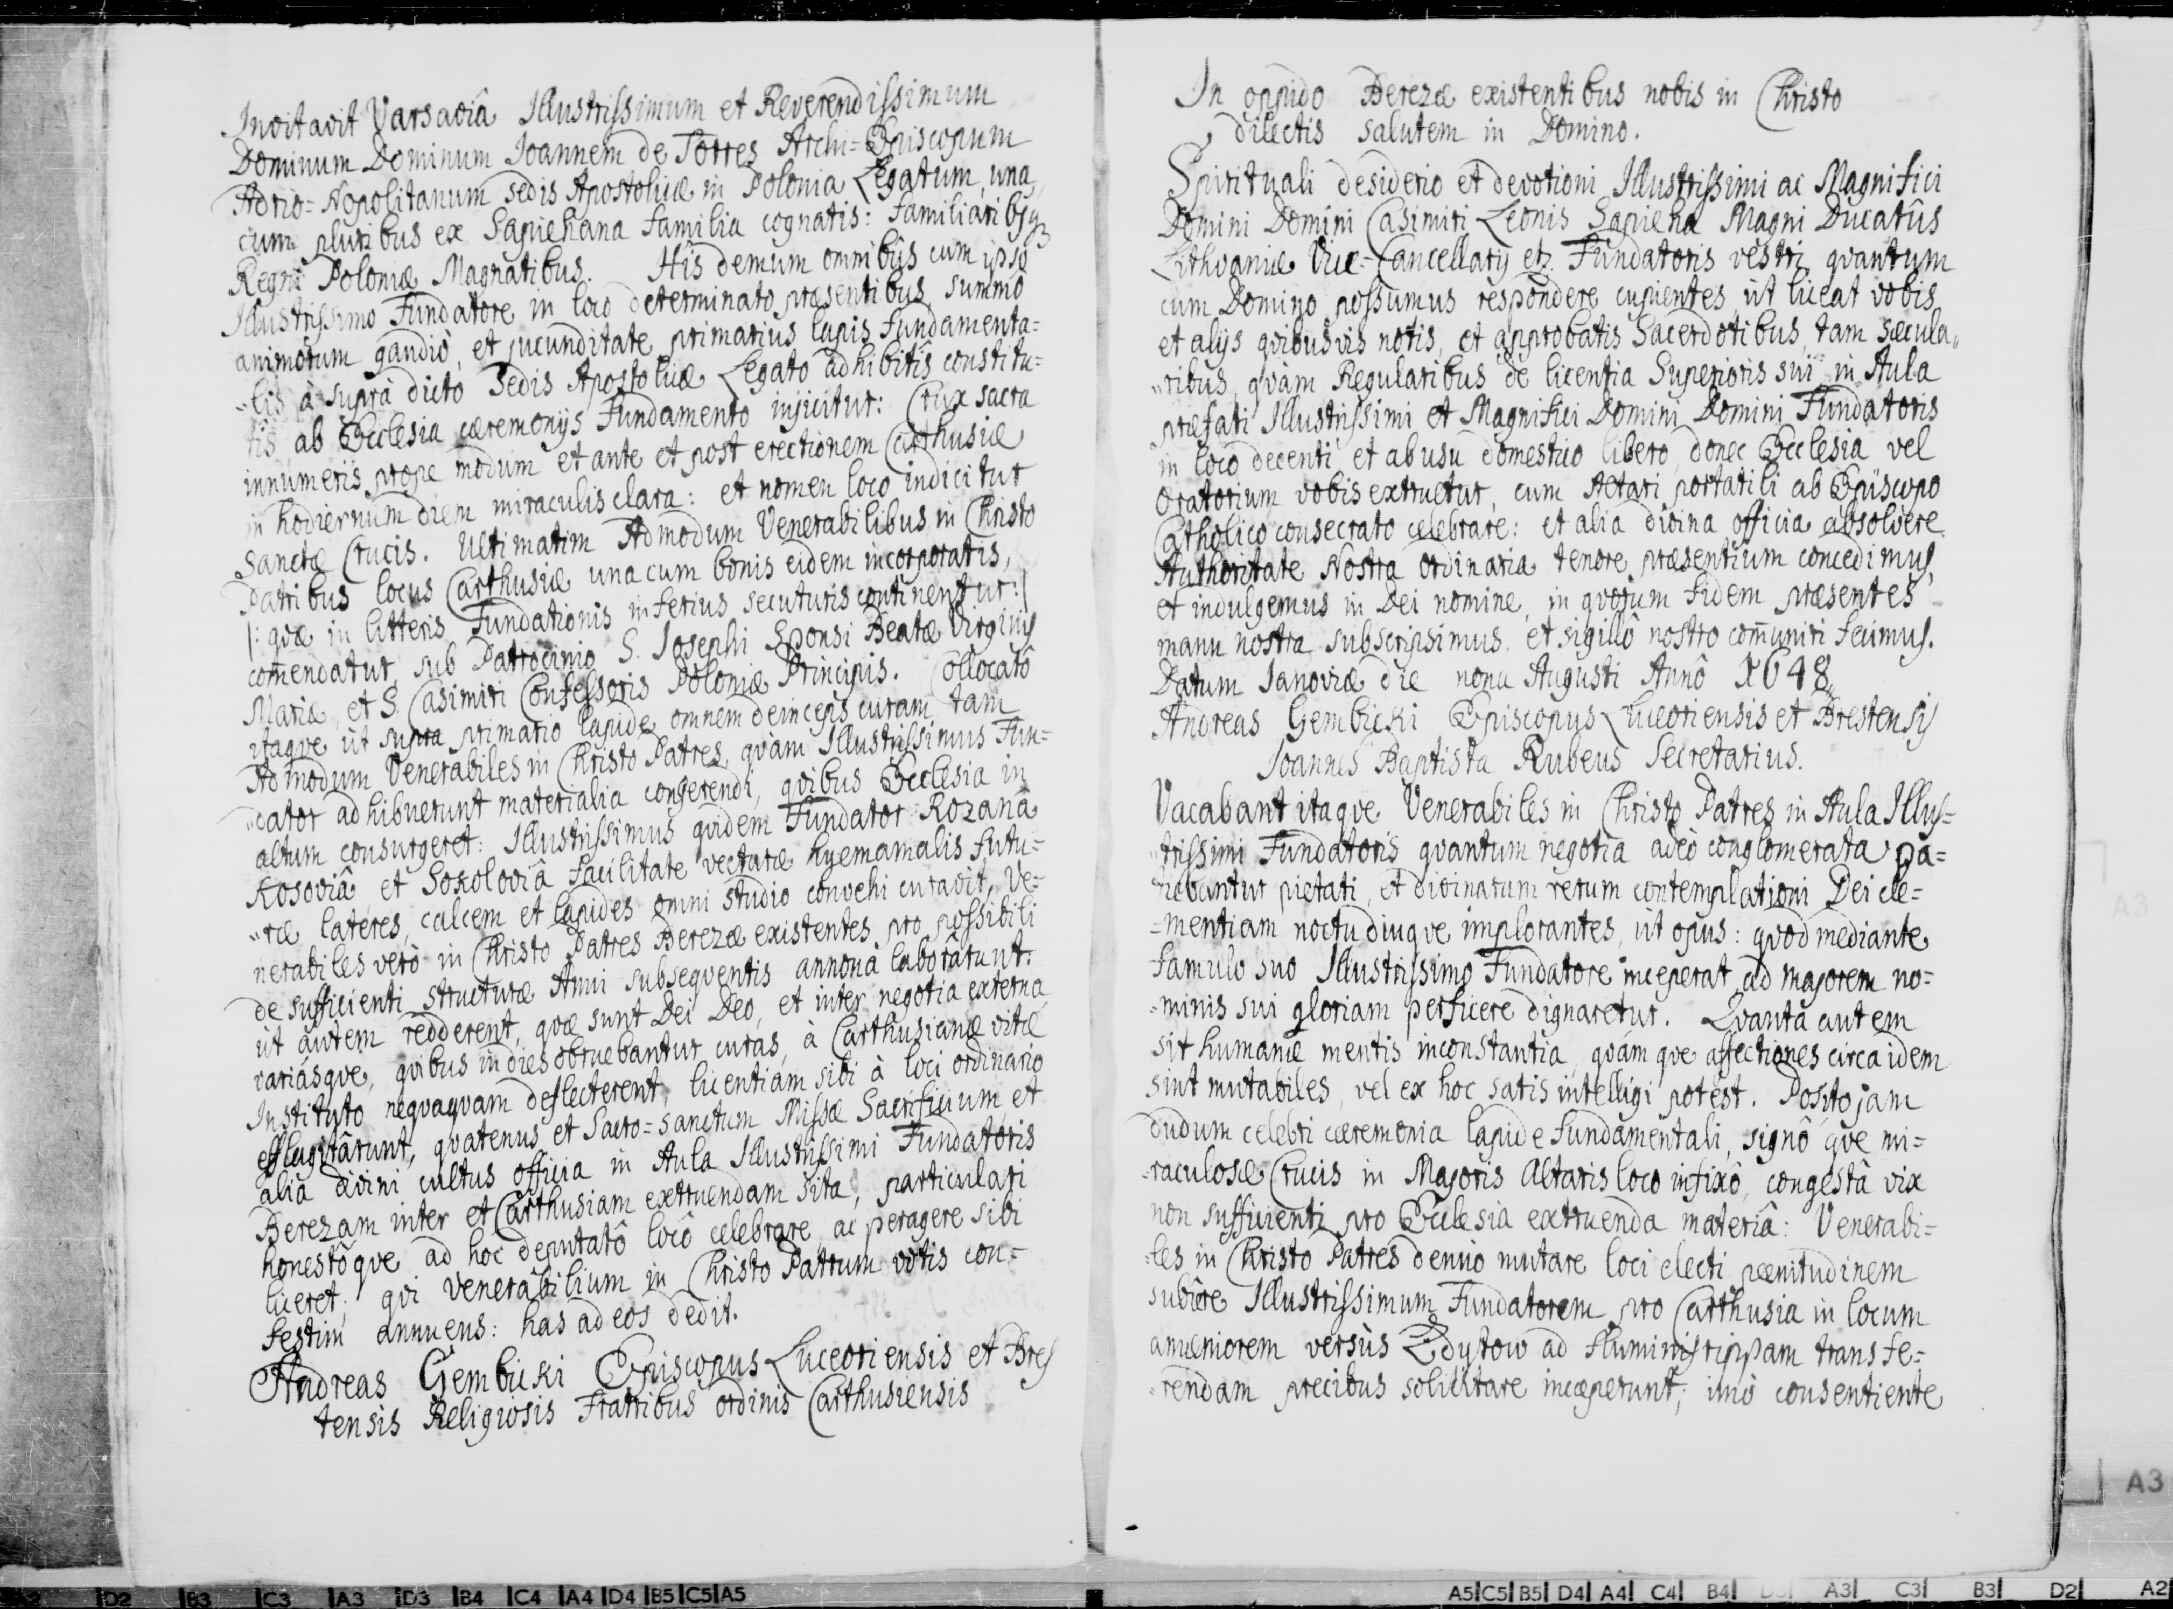 Invitavit Varsaviâ Illustrissimum et Reverendissimum
Dominum Dominum Joannem de Torres Archi=Episcopum
Adrio=Nopolitanum Sedis Apostolicæ in Polonia Legatum, una
cum pluribus ex Sapiehana familia cognatis: familiaribsq3
Regni Poloniæ Magnatibus. His demum omnibus cum ipso
Illustrissimo Fundatore in loco determinato præsentibus, summo
animorum gaudiô, et jucunditate primarius lapis fundamenta=
„lis à supra dicto Sedis Apostolicæ Legato adhibitis constitu=
tis ab Ecclesia cæremonijs Fundamento injicitur: Crux sacra
innumeris prope modum et ante et post erectionem Carthusiæ
in hodiernum diem miraculis clara: et nomen loco indicitur
Sanctæ Crucis. Ultimatim Admodum Venerabilibus in Christo
Patribus locus Carthusiæ una cum bonis eidem incorporatis,
/: quæ in litteris Fundationis inferius secuturis continentur :/
com̄endatur, sub Patrocinio S. Josephi Sponsi Beatæ Virginis
Mariæ, et S. Casimiri Confessoris Poloniæ Principis. Collocatô
itaque ut supra primario lapide omnem deinceps curam tam
Admodum Venerabiles in Christo Patres, quàm Illustrissimus Fun=
„dator adhibuerunt materialia congerendi, quibus Ecclesia in
altum consurgeret: Illustrissimus quidem Fundator Rozanâ
Kosoviâ et Sokoloviâ facilitate vecturæ hyemamalis futu=
„ræ lateres, calcem et lapides omni studio convehi curavit, Ve=
nerabiles verò in Christo Patres Berezæ existentes pro possibili
de sufficienti structuræ Anni subsequentis annona laborârunt.
ut autem redderent, quæ sunt Dei Deo, et inter negotia externa
variasque, quibus in dies obruebantur curas, à Carthusianæ vitæ
Instituto nequaquam deflecterent, licentiam sibi à loci ordinario
efflagitârunt, quatenus et Sacro=sanctum Missæ Sacrificium et
alia divini cultus officia in Aula Illustrissimi Fundatoris
Berezam inter et Carthusiam extruendam sita, particulari
honestôque ad hoc deputatô locô celebrare, ac peragere sibi
liceret; qui Venerabilium in Christo Patrum votis con=
festim annuens: has ad eos dedit.
Andreas Gembicki Episcopus Luceoriensis et Bres
tensis Religiosis Fratribus ordinis Carthusiensis
In oppido Berezæ existentibus nobis in Christo
dilectis salutem in Domino.
Spirituali desiderio et devotioni Illustrissimi ac Magnifici
Domini Domini Casimiri Leonis Sapieha Magni Ducatûs
Lithvaniæ Vice=Cancellarij etz. Fundatoris vestri quantum
cum Domino possumus respondere cupientes ut liceat vobis
et alijs quibusvis notis, et approbatis Sacerdotibus, tam sæcula„
„ribus, quàm Regularibus de licentia Superioris sui in Aula
præfati Illustrissimi et Magnifici Domini Domini Fundatoris
in loco decenti et ab usu domestico libero, donec Ecclesia vel
Oratorium vobis extruetur, cum Altari portatili ab Episcopo
Catholico consecrato celebrare: et alia divina officia absolvere
Authoritate Nostra ordinaria tenore præsentium concedimus,
et indulgemus in Dei nomine, in quorum fidem præsentes
manu nostra subscripsimus. et sigillô nostro com̄uniri fecimus.
Datum Janoviæ die nona Augusti Annô 1648„
Andreas Gembicki Episcopus Luceoriensis et Brestensis
Joannes Baptista Rubeus Secretarius.
Vacabant itaque Venerabiles in Christo Patres in Aula Illus=
„trissimi Fundatoris quantum negotia adeò conglomerata pa=
tiebantur pietati, et divinarum rerum contemplationi Dei cle=
=mentiam noctu diuque implorantes, ut opus: quod mediante
famulo suo Illustrissimo Fundatore inceperat ad majorem no=
=minis sui gloriam perficere dignaretur. Quanta autem
sit humanæ mentis inconstantia, quamque affectiones circa idem
sint mutabiles, vel ex hoc satis intelligi potest. Posito jam
dudum celebri cæremonia lapide fundamentali, signô que mi=
=raculosæ Crucis in Majoris Altaris loco infixô, congestâ vix
non sufficienti pro Ecclesia extruenda materiâ: Venerabi=
=les in Christo Patres denuo mutare loci electi pænitudinem
subîere Illustrissimum Fundatorem pro Carthusia in locum
amæniorem versùs Zdytow ad fluminis rippam transfe=
=rendam precibus sollicitare incæperunt; imò consentiente